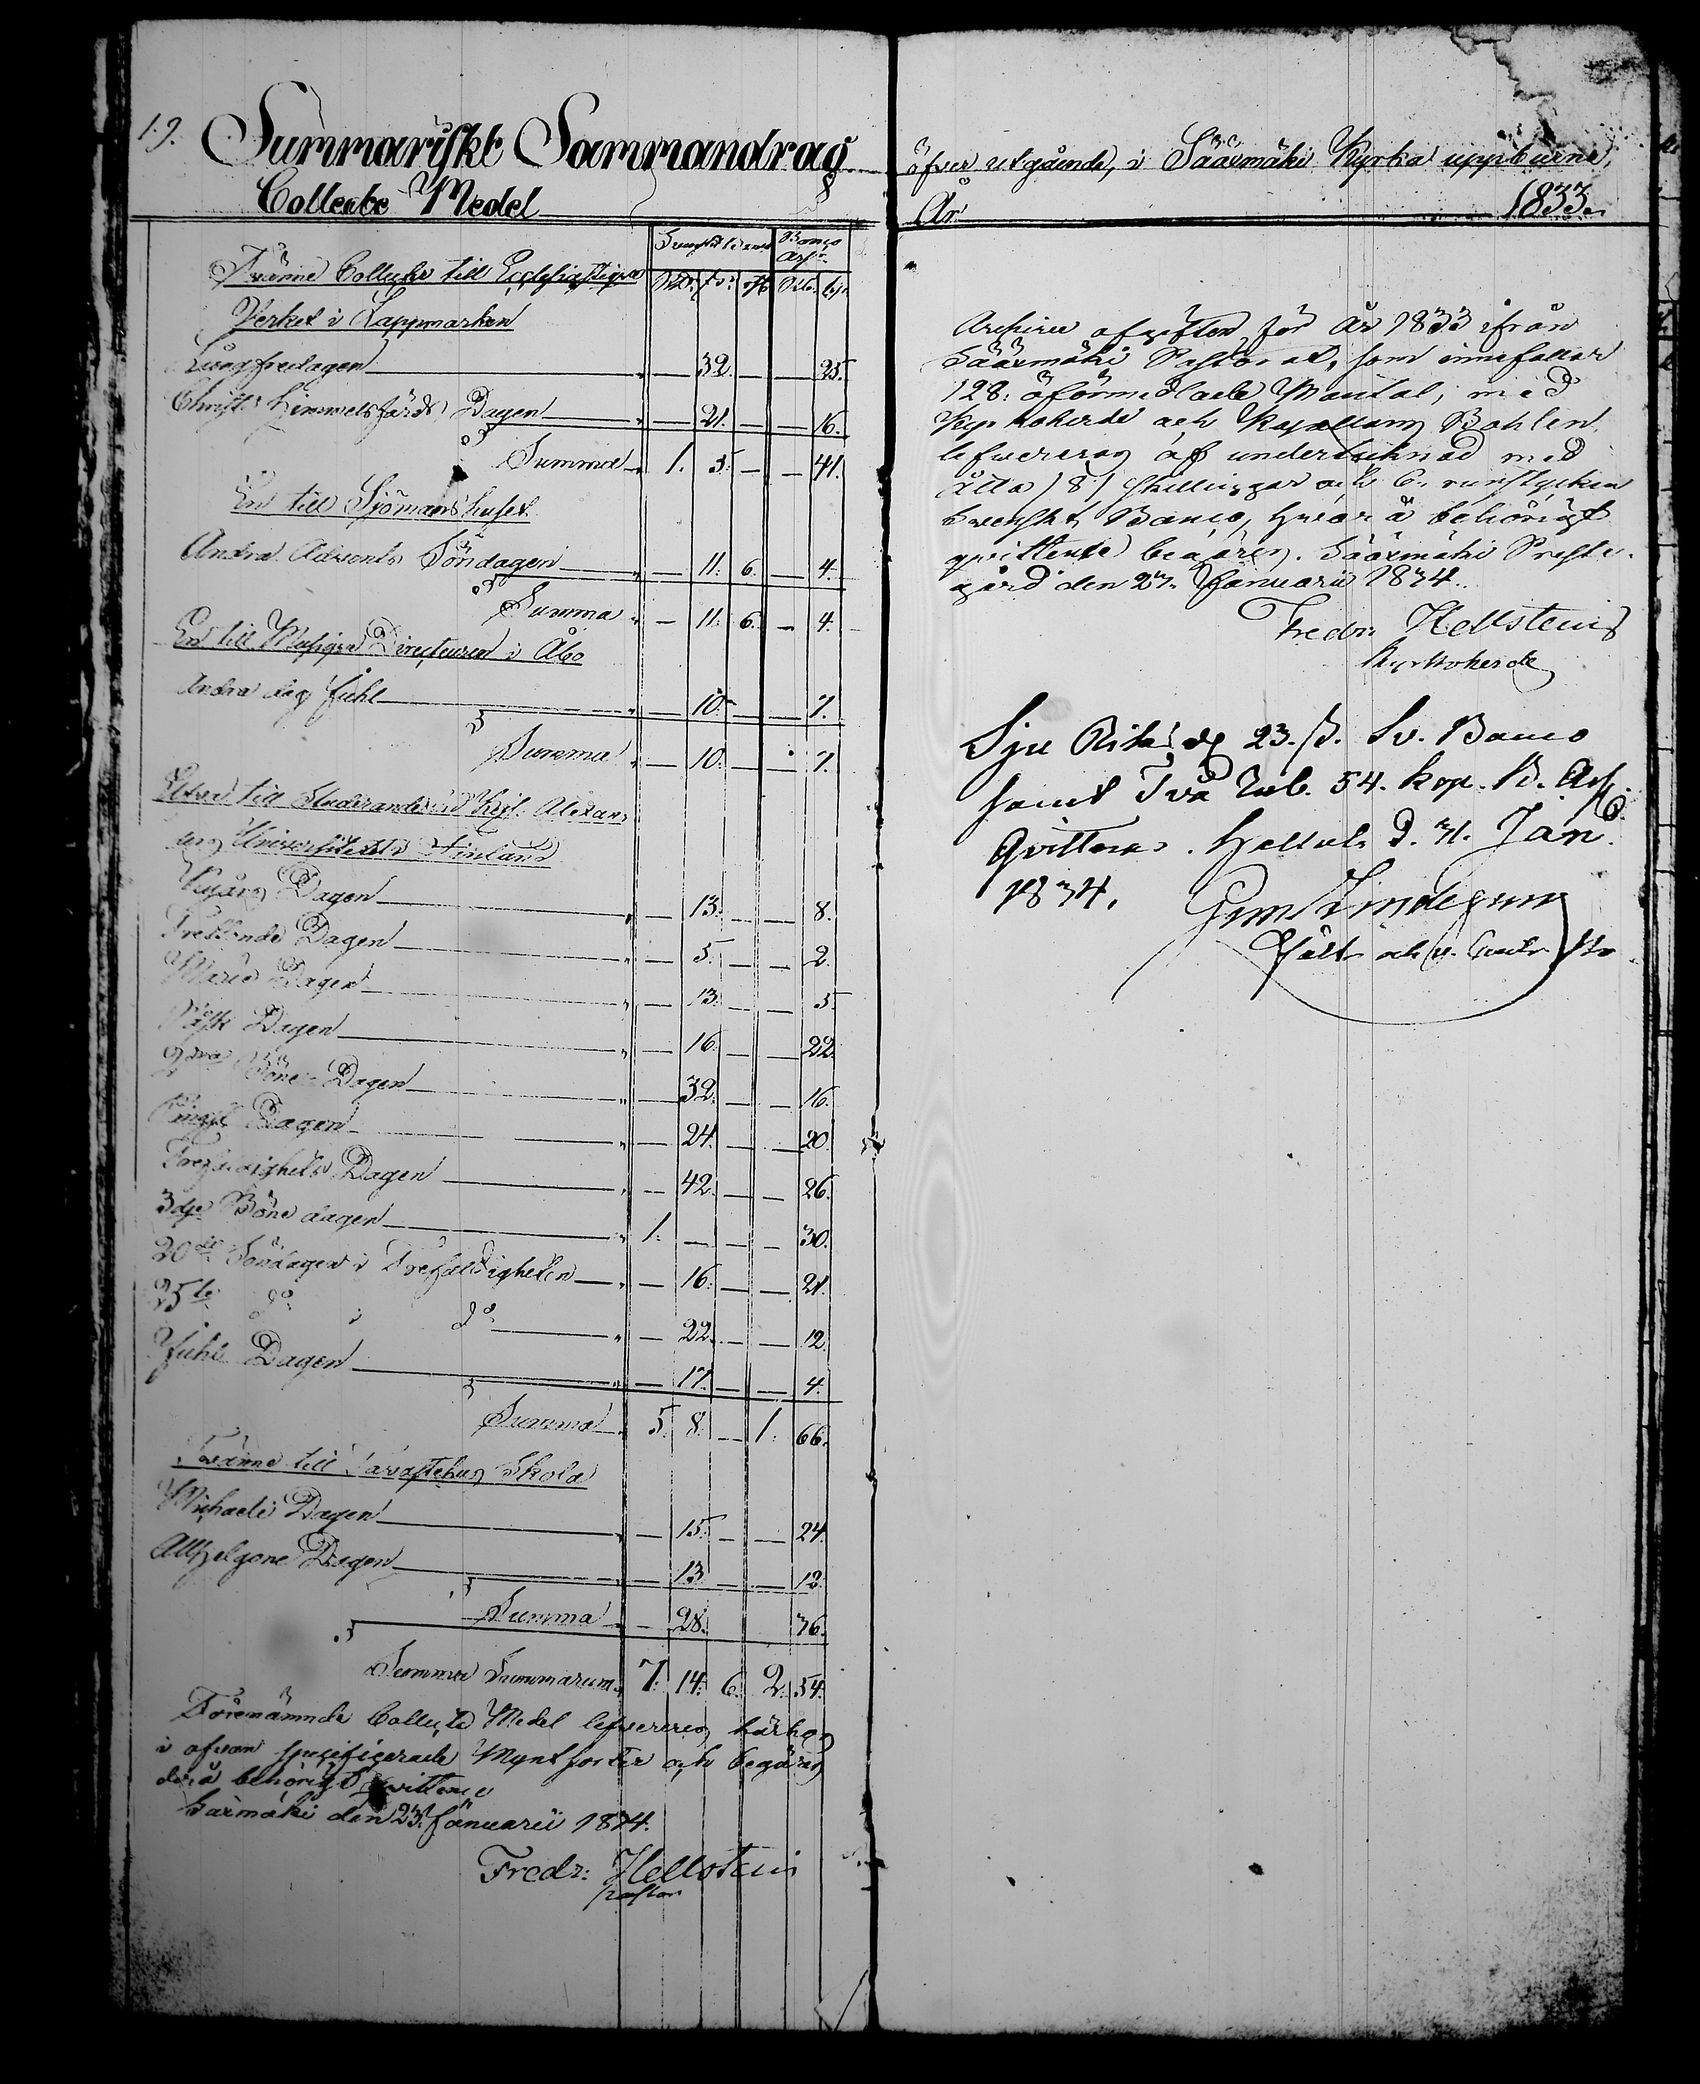 19. Summariskt Sammandrag öfver utgående, i Sääxmäki Kyrka uppburne,
Collecte Medel År 1833.
Svenskt Banco Banco Ass:
Rd. sk: rst Rub. kop.
Tvänne Collecter till Ecclesiastique
Verket i Lappmarken
Långfredagen " — 32. — — 25.
Christi Himmelsfärds Dagen " — 21. — — 16.
Summa " 1. 5. — — 41.
En till Sjömanshuset
Andra Advents Söndagen " — 11. 6. — 4.
Summa " — 11. 6. — 4.
En till Musique Directeuren i Åbo
Andra dag Juhl " — 10. — — 7.
Summa " — 10. — 7.
Elfva till Studerande vid Kejs. Alexan-
ders Universitetet i Finland
Nyårs Dagen " — 13. — — 8.
Trettonde Dagen " — 5. — — 2.
Marie Dagen " — 13. — — 5.
Påsk Dagen " — 16. — — 22.
2dra Böne Dagen " — 32. — — 16.
Pingst Dagen " — 24. — — 20.
Trefaldighets Dagen " — 42. — — 26.
3dje Böne dagen " 1. — — — 30.
20de Söndagen i Trefaldigheten " — 16. — — 21.
25te do i do " — 22. — — 12.
Juhl Dagen " — 17. — — 4.
Summa 5. 8. — 1. 66.
Tvänne till Tavastehus Skola
Michaeli Dagen " — 15. — — 24.
Allhelgone Dagen — 13 — — 12.
Summa — 28. 36.
Summa Summarum " 7. 14. 6. 2. 54.
Förenämnde Collecte Medel lefvereras härhos
i ofvan specificerade Myntsorter och begäres
derå behörigt qvittence
Saxmäki den 23. Januarii 1834.
Fredr: Hellsteni
pastor
Archivie afgiften för År 1833 ifrån
Sääxmäki Pastorat, som innefattar
128. oförmedlade Mantal, med
Kyrkoherde och Kapellans Bohlen
lefvereras af undertecknad med
Åtta /8/ skillingar och 6. runstycken
Svenskt Banco, hvarå behörigt
qvittence begäres. Sääxmäki Preste-
gård den 23. Januarii 1834.
Fredr: Hellstenis
Kyrkoherde
Sju Riksd 23. sk. Sv. Banco
samt Två Rub. 54. kop. B. Ass.
Qvitteras. d. 31. Jan.
1834.